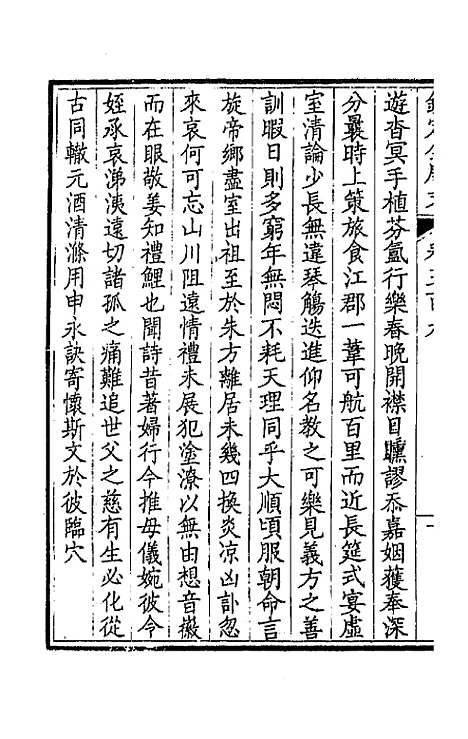 遊杳冥手植芬氳行樂春晚開襟日曛謬忝嘉姻獲奉深
分曩時上策旅食江郡一葦可航百里而近長筵式宴虛
室清論少長無違琴觴迭進仰名教之可樂見義方之善
訓暇日則多窮年無悶不耗天理同乎大順頃服朝命言
旋帝鄉盡室出祖至於朱方離居未幾四換炎凉凶訃忽
來哀何可忘山川阻遠情禮未展犯塗潦以無由想音徽
而在眼敬姜知禮鯉也聞詩昔著婦行今推母儀婉彼令
姪承哀涕洟遠切諸孤之痛難追世父之慈有生必化從
古同轍元酒清滌用申永訣寄懷斯文於彼臨穴